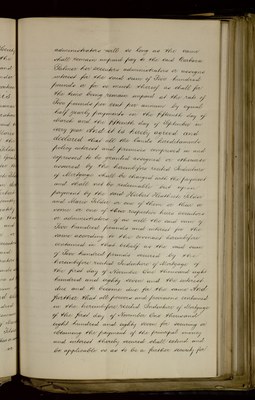 administrators will so long as the same
shall remain unpaid pay to the said Barbara
her executors administrators or assigns
interest for the said sum of Two hundred
pounds or for so much thereof as shall for
the time being remain unpaid at the rate of
Five pounds per cent per annum by equal
half yearly payments on the fifteenth day of
March and the fifteenth day of September in
every year And it is hereby agreed and
declared that all the lands hereditaments
policy interest and premises comprised in and
expressed to be granted assigned or otherwise
assured by the hereinbefore recited Indenture
of Mortgage shall be charged with the payment
and shall not be redeemable but upon
payment by the said
and or one of them or their or
some or one of their respective heirs executors
or administrators of as well the said sum of
Two hundred pounds and interest for the
same according to the covenant hereinbefore
contained in that behalf as the said sum
of Two hundred pounds secured by the
hereinbefore recited Indenture of Mortgage of
the first day of November One thousand eight
hundred and eighty seven and the interest
due and to become due for the same And
further that all powers and provisions contained
in the hereinbefore recited Indenture of Mortgage
of the first day of November One thousand
eight hundred and eighty seven for securing or
obtaining the payment of the principal money
and interest thereby secured shall extend and
be applicable so as to be a further security for